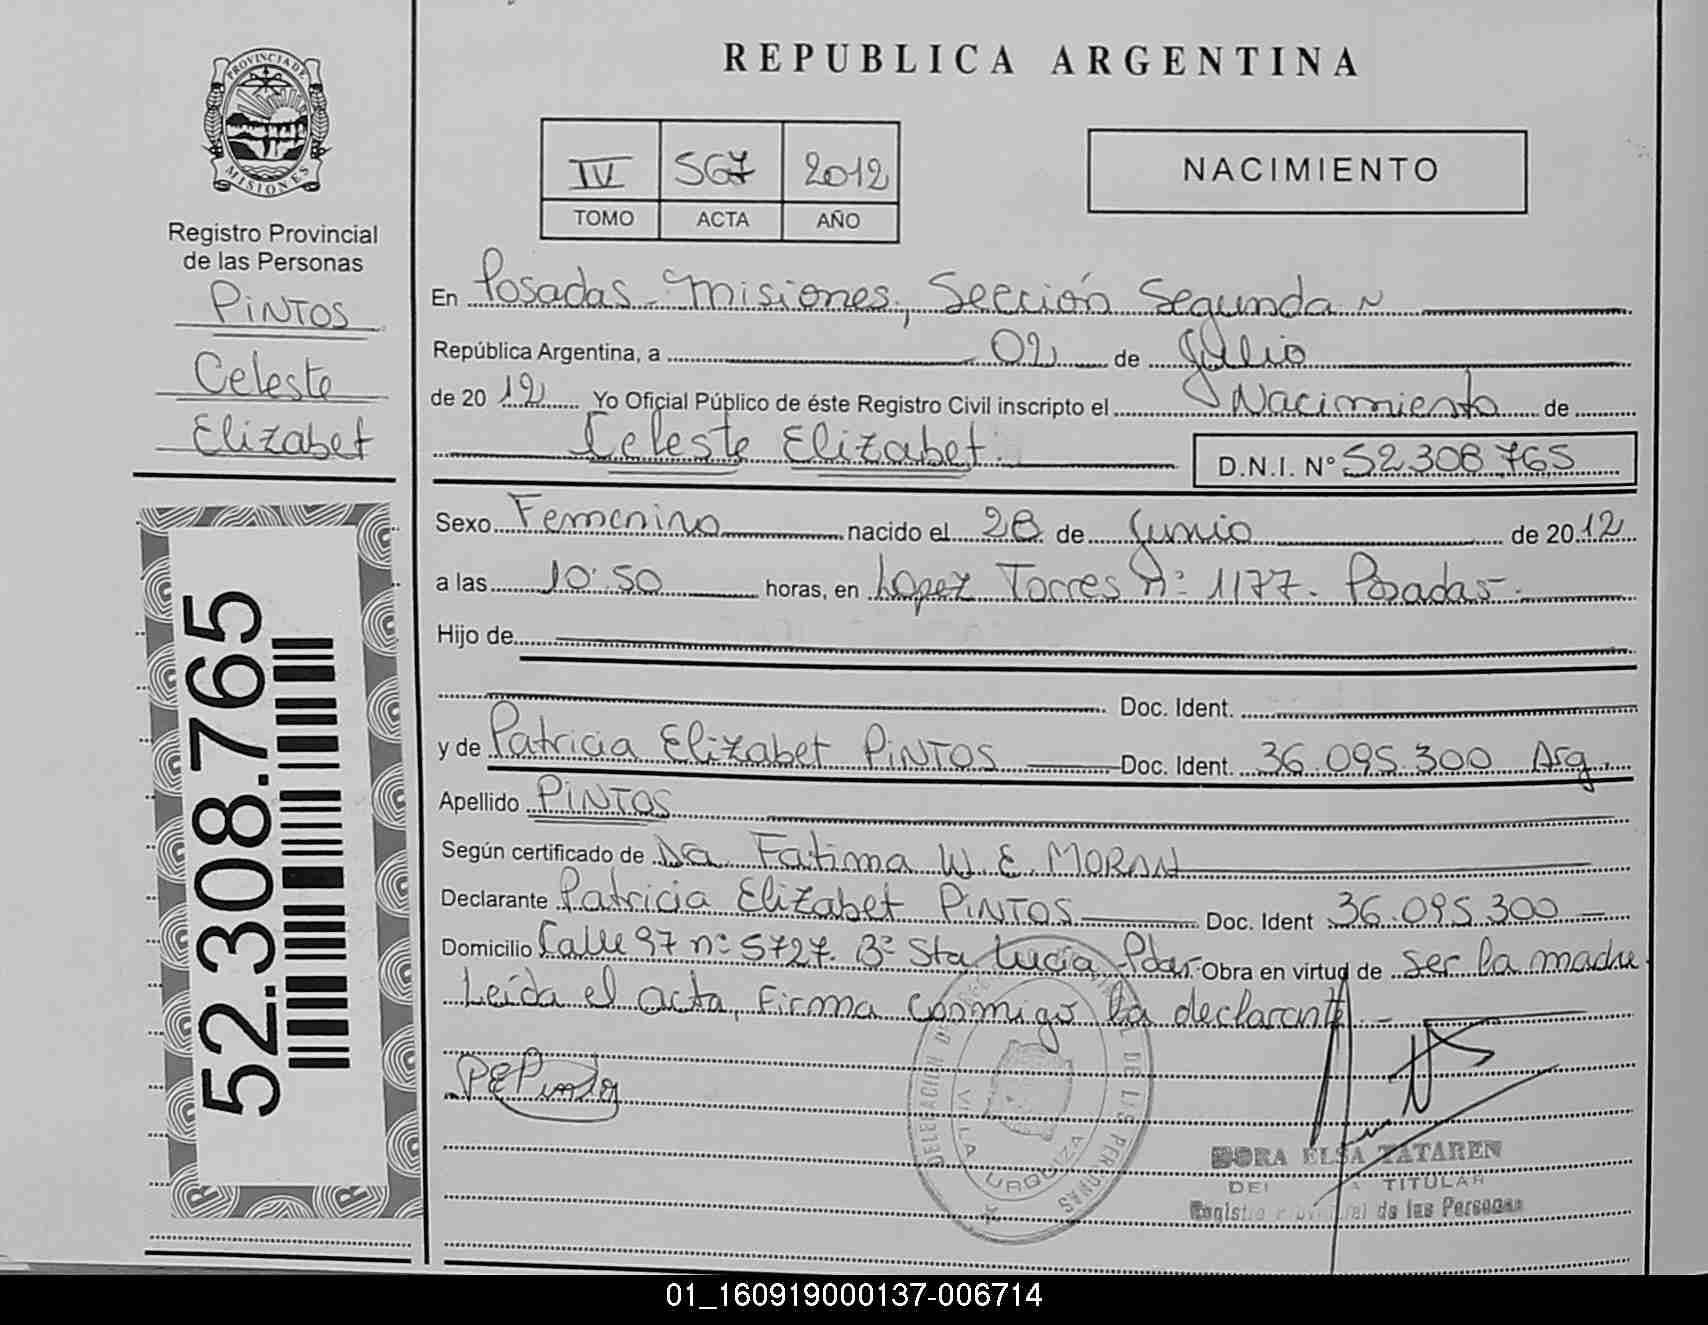 REPUBLICA ARGENTINA
PROVINCIA DE
MISIONES
Registro Provincial
de las Personas
PINTOS
Celeste
Elizabet
52.308.765
IV 567 2012
TOMO ACTA AÑO
NACIMIENTO
En Posadas - Misiones, Sección Segunda
República Argentina, a 02 de Julio
de 2012 Yo Oficial Público de éste Registro Civil inscripto el Nacimiento de
Celeste Elizabet. D.N.I. N° 52.308.765
Sexo Femenino nacido el 28 de Junio de 2012
a las 10:50 horas, en Lopez Torres N° 1177. Posadas-.
Hijo de
Doc. Ident.
y de Patricia Elizabet PINTOS Doc. Ident. 36.095.300 Arg.
Apellido PINTOS
Según certificado de Dra Fatima W. E. MORAN
Declarante Patricia Elizabet PINTOS Doc. Ident 36.095.300
Domicilio Calle 97 n° 5727. B° Sta Lucía, Pdas- Obra en virtud de ser la madre
Leída el acta, firma conmigo la declarante.-
PEPintos
DELEGACION DE LAS PERSONAS
VILLA URQUIZA
DORA ELSA TATAREN
TITULAR
Registro Provincial de las Personas
01_160919000137-006714